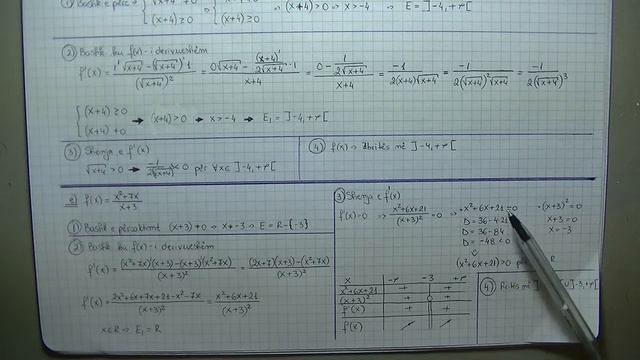 ① Bashk e përc ? { √x+4 ≠0 (x+4)≥0 ⇒ { ⇒ (x+4)>0 ⇒ x>-4 ⇒ E = ]-4,+∞[
② Bashk ku f(x)-i derivueshëm
f'(x) = (1'√x+4 - (√x+4)'·1)/(√x+4)² = (0√x+4 - (x+4)'/(2√x+4)·1)/(x+4) = (0 - 1/(2√x+4))/(x+4) = -1/(2(x+4)√x+4) = -1/(2(√x+4)²√x+4) = -1/(2(√x+4)³)
{ (x+4)≥0 (x+4)≠0 → (x+4)>0 → x>-4 → E₁ = ]-4,+∞[
③ Shenja e f'(x)
√x+4 >0 → -1/(2(√x+4)³) <0 për ∀x∈ ]-4,+∞[
④ f(x) → Zbritës në ]-4,+∞[
e) f(x) = (x²+7x)/(x+3)
① Bashk e përcaktimit (x+3)≠0 ⇒ x≠-3 ⇒ E = R-{-3}
② Bashk ku f(x)-i derivueshëm
f'(x) = ((x²+7x)'(x+3) - (x+3)'(x²+7x))/(x+3)² = ((2x+7)(x+3) - (x²+7x))/(x+3)²
f'(x) = (2x²+6x+7x+21-x²-7x)/(x+3)² = (x²+6x+21)/(x+3)²
x∈R ⇒ E₁ = R
③ Shenja e f'(x)
f'(x)=0 ⇒ (x²+6x+21)/(x+3)² = 0 ⇒ • x²+6x+21=0
D = 36-4·21
D = 36-84
D = -48 <0
(x²+6x+21)>0 R
• (x+3)² = 0
x+3=0
x=-3
x -∞ -3 +∞
x²+6x+21 + +
(x+3)² + 0 +
f'(x) + +
f(x) ↗ ↗
④ Rritës në ] ]-3,+∞[